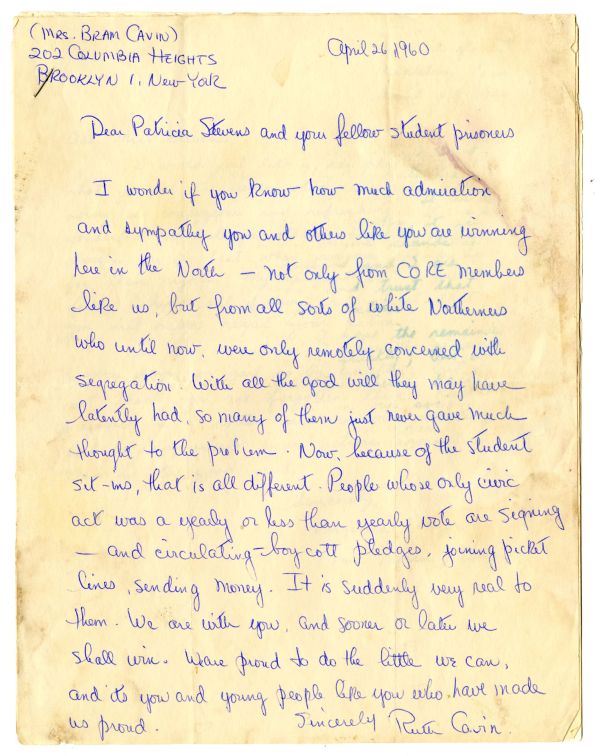 (MRS. BRAM CAVIN)
202 COLUMBIA HEIGHTS
BROOKLYN 1, NEW YORK
April 26 1960
Dear Patricia Stevens and your fellow student prisoners
I wonder if you know how much admiration
and sympathy you and others like you are winning
here in the North — not only from CORE members
like us, but from all sorts of white Northerners
who until now, were only remotely concerned with
segregation. With all the good will they may have
latently had, so many of them just never gave much
thought to the problem. Now, because of the student
sit-ins, that is all different. People whose only civic
act was a yearly or less than yearly vote are signing
— and circulating — boycott pledges, joining picket
lines, sending money. It is suddenly very real to
them. We are with you, and sooner or later we
shall win. We are proud to do the little we can,
and its you and young people like you who have made
us proud.
Sincerely Ruth Cavin.